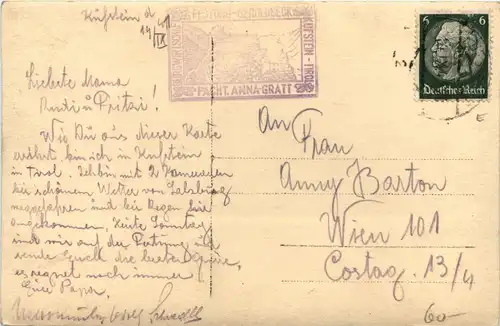 Kufstein d
14/IX 41
FESTUNG GEROLDSECK
KUFSTEIN-TIROL
PACHT. ANNA GRATT
6 6
Deutsches Reich
Liebste Mama
Rudi u Fritzi!
Wie Du aus dieser Karte
ersiehst bin ich in Kufstein
in Tirol. Ich bin mit 2 Kameraden
bei schönem Wetter von Salzburg
weggefahren und bei Regen hier
angekommen. Heute Sonntag
sind wir auf der Festung
sende Euch die besten Grüße,
es regnet noch immer
Euer Papa.
An
Frau
Anny Barton
Wien 101
Costag. 13/4
60-